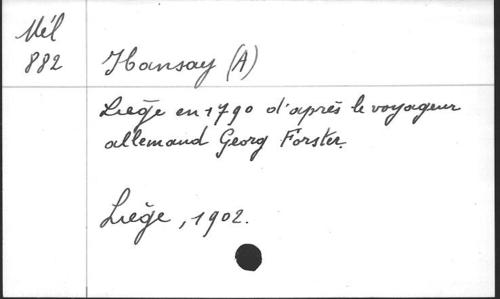 Mél
882
Hansay (A)
Liège en 1790 d'après le voyageur
allemand Georg Forster.
Liège, 1902.